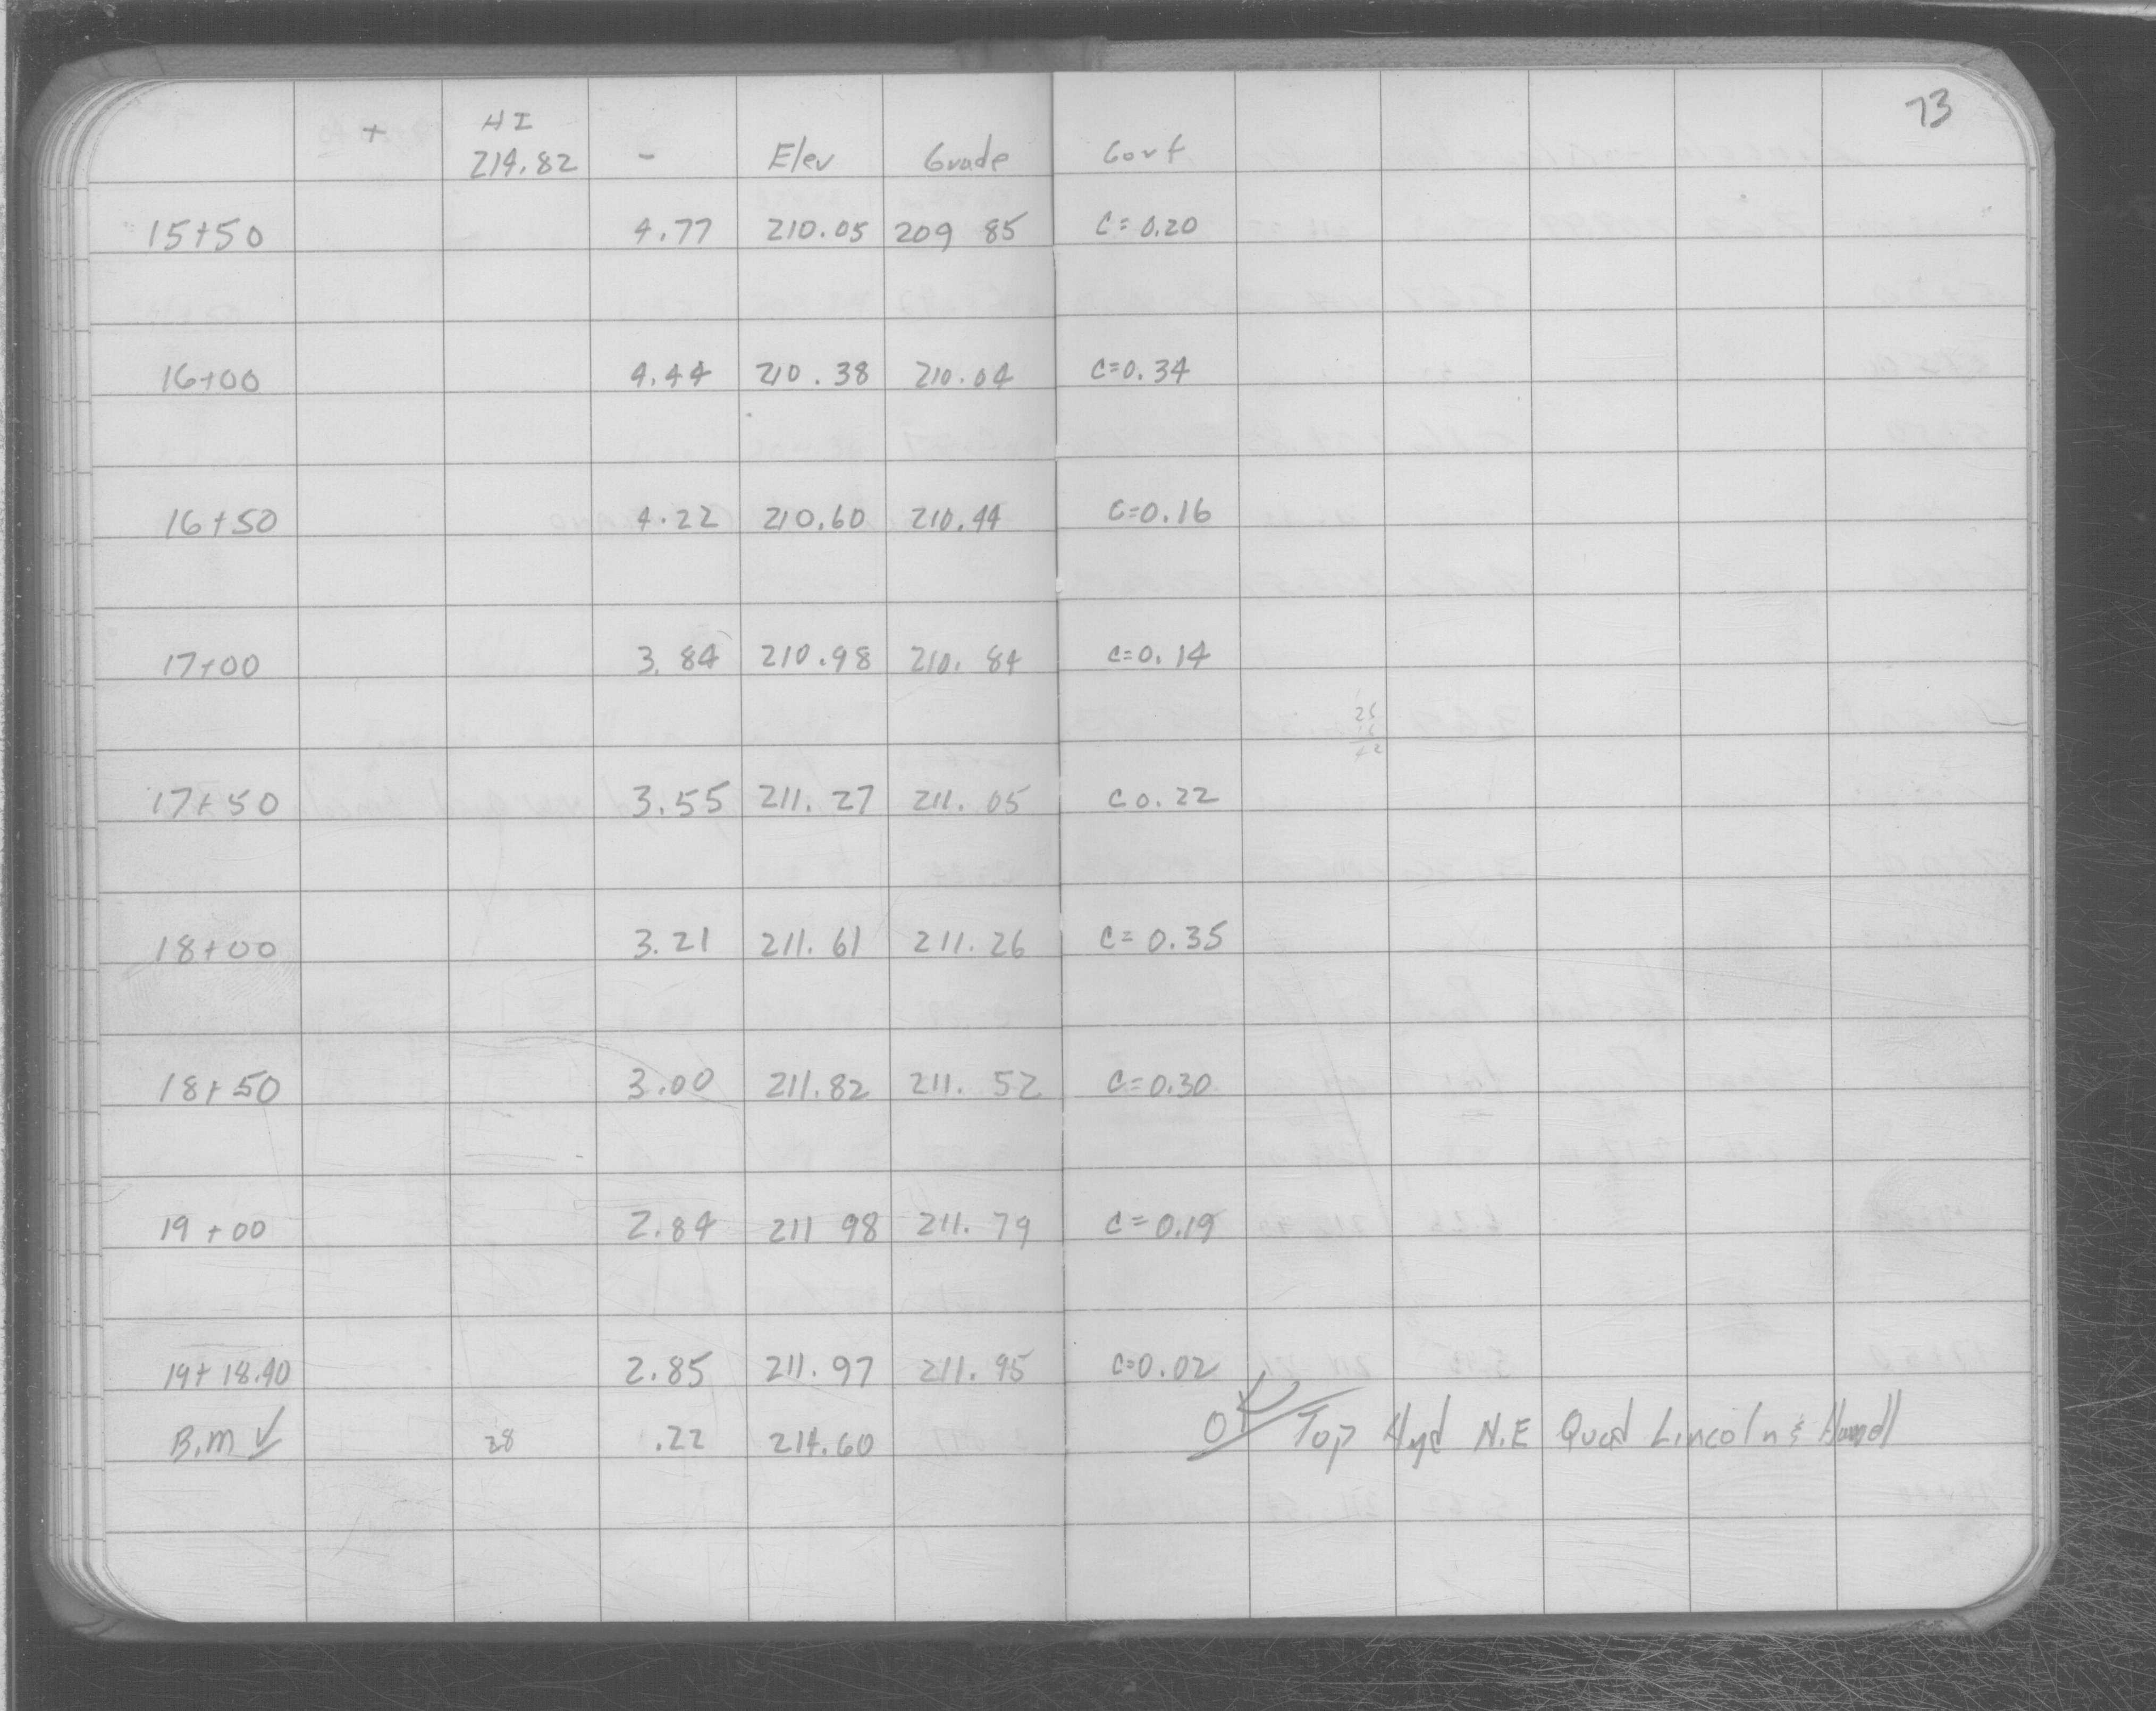 73
+ HI - Elev Grade C or f
214.82
15+50 4.77 210.05 209 85 C=0.20
16+00 4.44 210.38 210.04 C=0.34
16+50 4.22 210.60 210.44 C=0.16
17+00 3.84 210.98 210.84 C=0.14
17+50 3.55 211.27 211.05 C 0.22
18+00 3.21 211.61 211.26 C=0.35
18+50 3.00 211.82 211.52 C=0.30
19+00 2.84 211 98 211.79 C=0.19
19+18.40 2.85 211.97 211.95 C=0.02
B.M ✓ 28 .22 214.60 OK Top Hyd N.E Quad Lincoln &